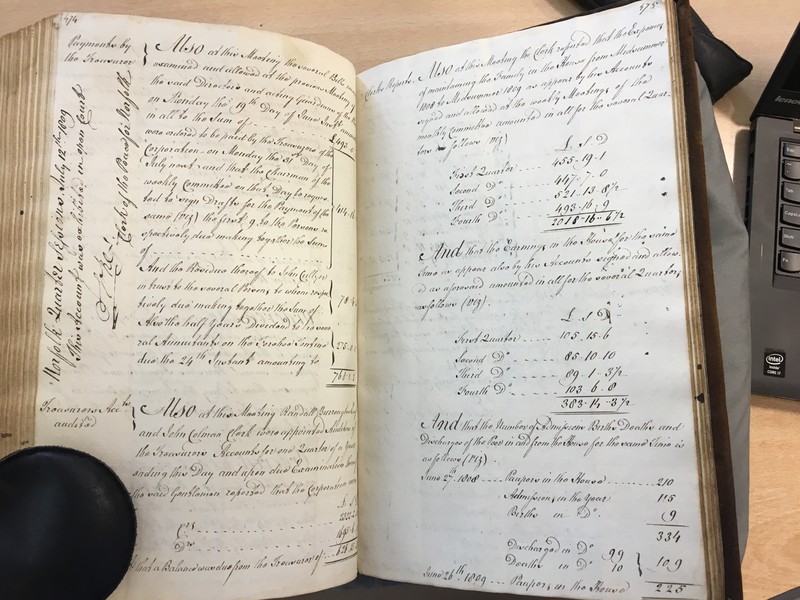 474
Payments by
the Treasurer
Also at this Meeting the several Bills
examined and allowed at the previous Meeting of
the said Directors and acting Guardians
on Monday the 19th Day of June Inst amount
in all to the Sum of
were ordered to be paid by the Treasurer of the
Corporation on Monday the 31st Day of
July next and that the Chairman of the
weekly Committee on that Day be reques
ted to sign Drafts for the Payment of the
same (viz) the first 9 to the Persons re
spectively due making together the Sum
of
And the Residue thereof to John
in trust to the several Persons to whom respec
tively due making together the Sum of
Also the half Years Dividend to
ral Annuitants on the
due the 24th Instant amounting to
Norfolk Quarter Sessions, July 12th 1809
This Account was exhibited in open Court
Clerk of the Peace for Norfolk
Treasurers Accts
audited
Also at this Meeting Randall Burroughes
and John Colman Clerk were appointed Auditors of
the Treasurers Accounts for one Quarter of a Year
ending this Day and upon due Examination
the said Gentlemen reported that the Corporation
£ s
Crs
Drs
that a Balance was due from the Treasurer of
375
Clerks Reports
Also at this Meeting the Clerk reported that the Expences
of maintaining the Family in the House from Midsummer
1808 to Midsummer 1809 as appears by his Accounts
signed and allowed at the weekly Meetings of the
monthly Committees amounted in all for the several Quar
ters as follows (viz)
£ s D
First Quarter 455-19-1
Second Do 447-7-0
Third Do 521-13-8½
Fourth Do 493-16-9
2018-16-6½
And that the Earnings in the House for the same
Time as appear also by his Accounts signed and allow
ed as aforesaid amounted in all for the several Quarters
as follows (viz)
£ s D
First Quarter 105-15-6
Second Do 85-10-10
Third Do 89-1-3½
Fourth Do 103-6-8
383-14-3½
And that the Number of Admissions Births Deaths and
Discharges of the Poor in and from the House for the same Time is
as follows (viz)
June 27th 1808 Paupers in the House 210
Admissions in the Year 115
Births in Do 9
334
Discharged in Do 99
Deaths in Do 10
109
June 26th 1809 Paupers in the House 225
lenovo
Caps Lock
Shift
Ctrl
Fn
intel
CORE i7